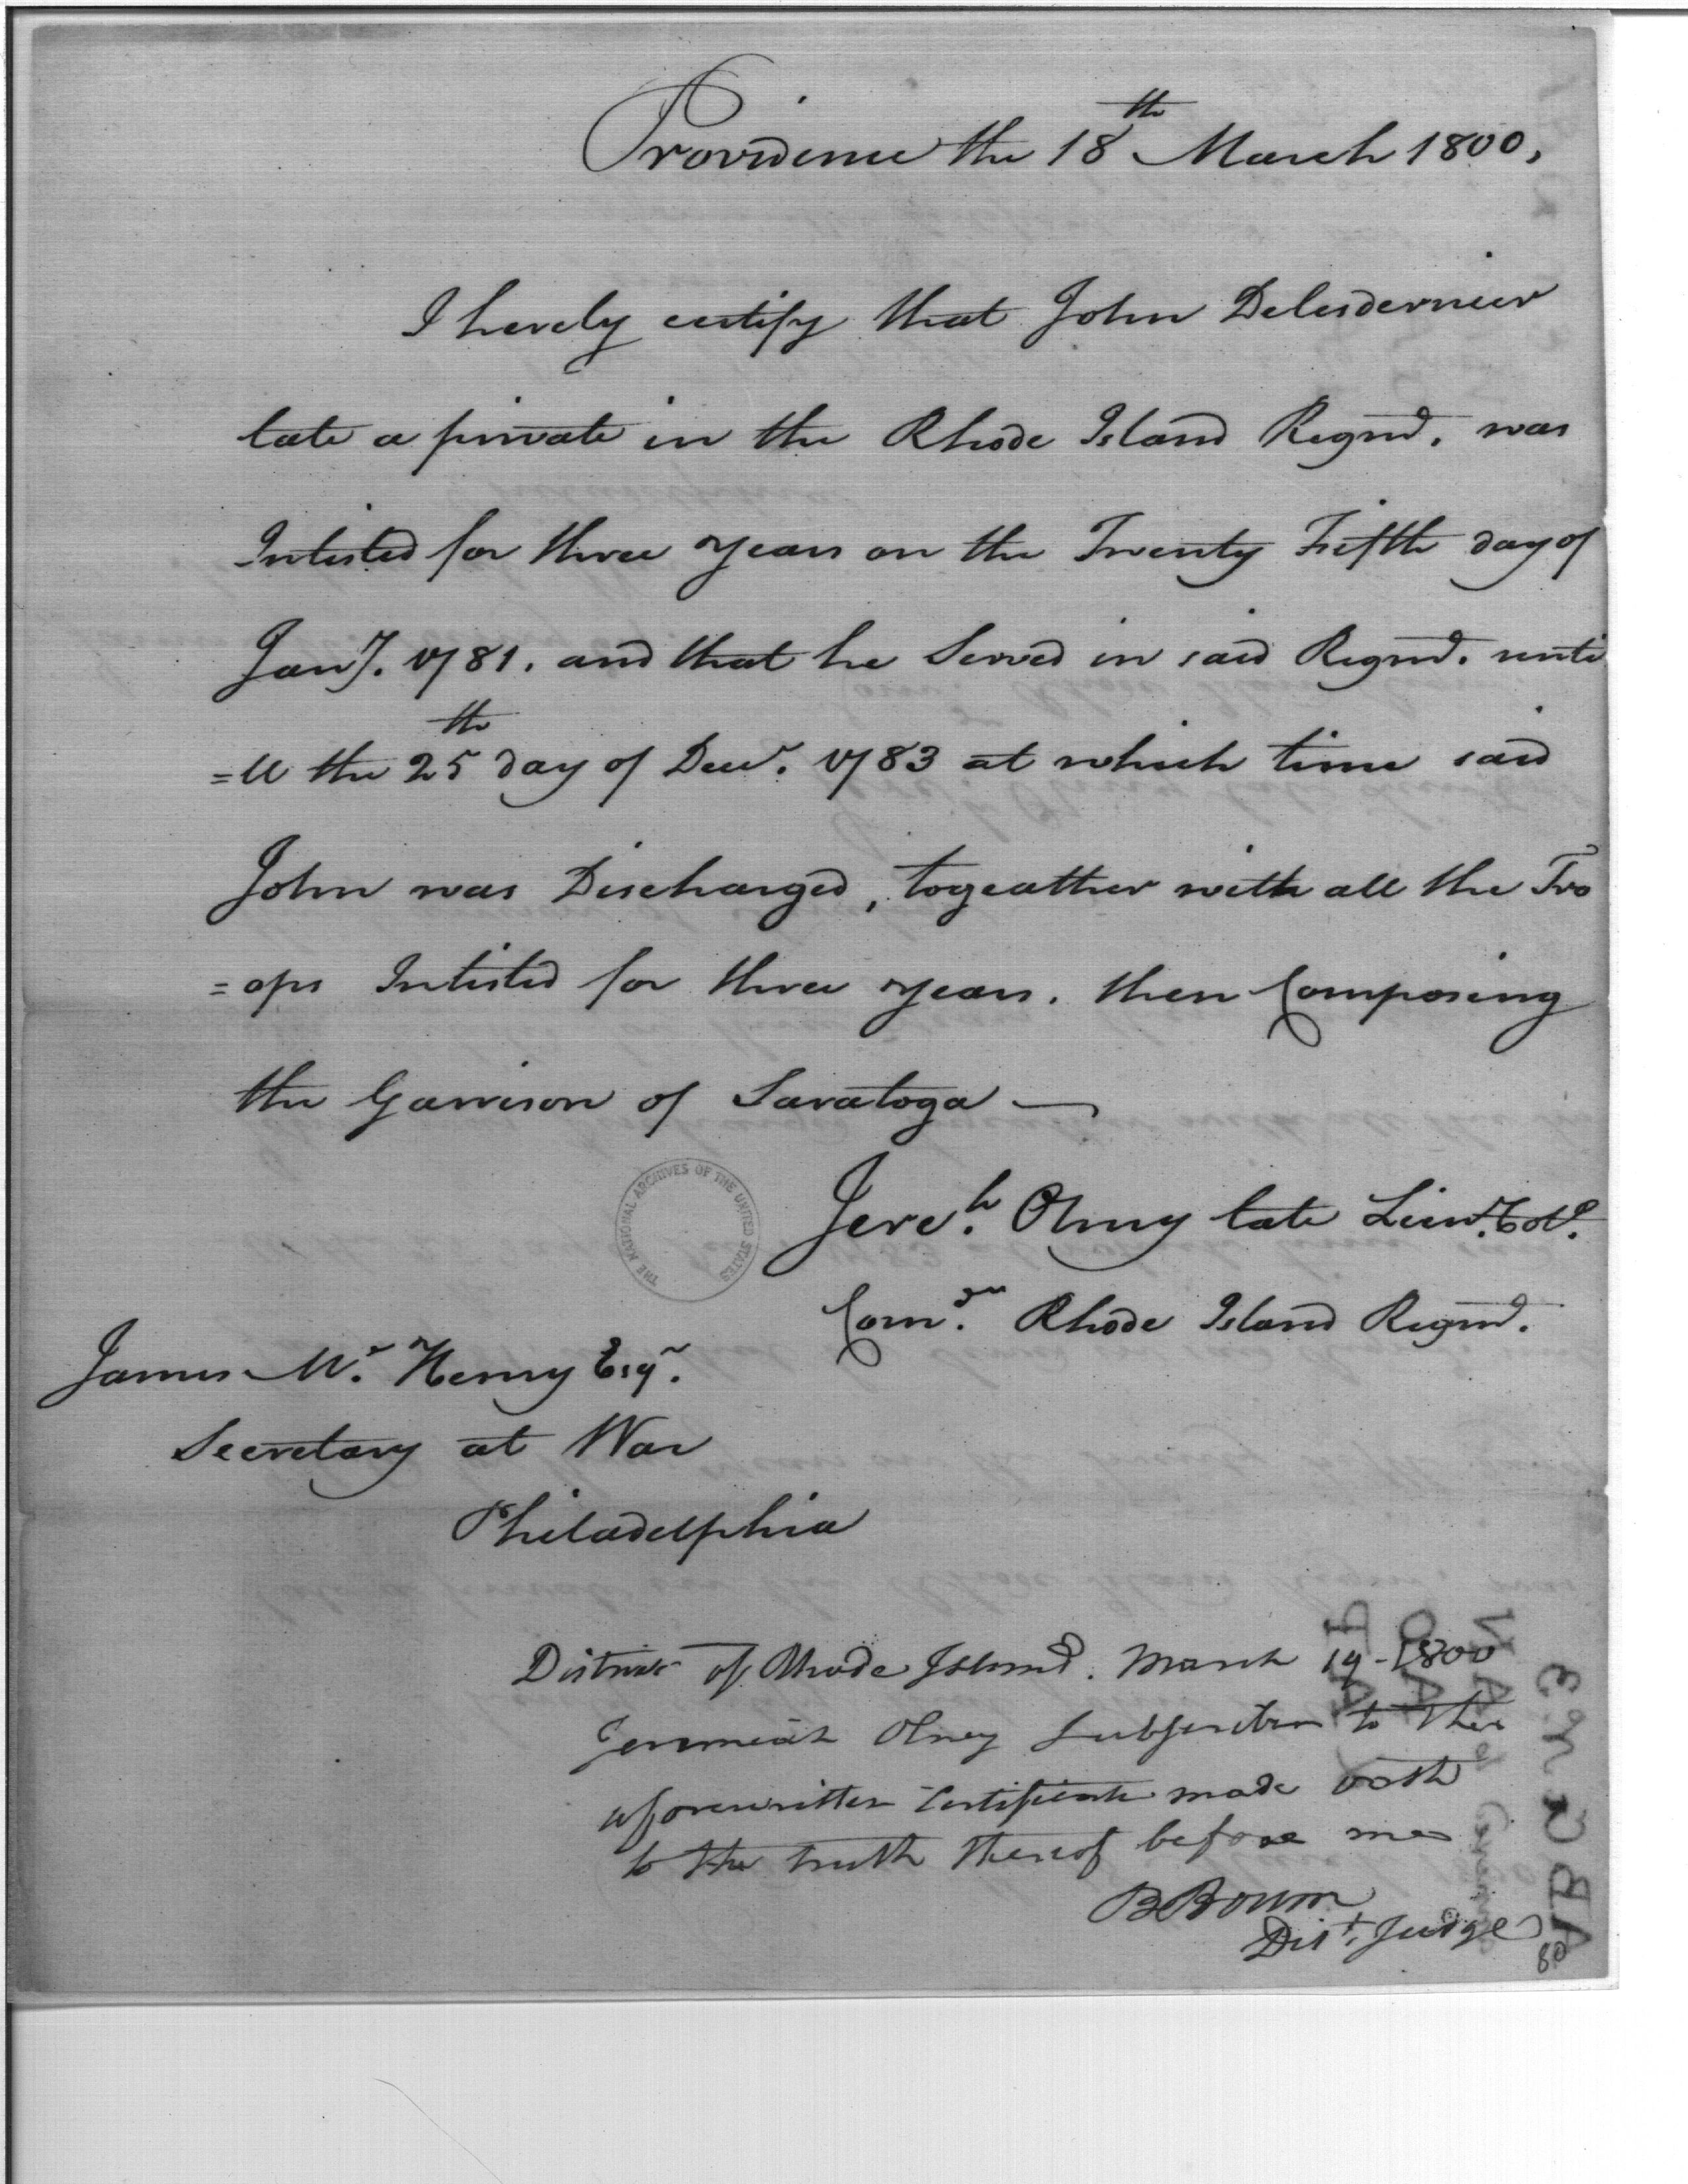 Providence the 18th March 1800,
I hereby certify that John Delesdernier
late a private in the Rhode Island Regmt. was
Inlisted for three years on the Twenty Fifth day of
Jany. 1781. and that he Served in said Regmt. unti
=ll the 25th day of Decr. 1783 at which time said
John was Discharged, togeather with all the Tro
=ops Inlisted for three years. then Composing
the Garrison of Saratoga —
THE NATIONAL ARCHIVES OF THE UNITED STATES
Jereh. Olney late Lieut. Col.
Comdr. Rhode Island Regmt.
James Mc. Henry Esqr.
Secretary at War
Philadelphia
District of Rhode Island. March 19-1800
Jeremiah Olney Subscriber to the
aforewritten Certificate made oath
to the truth thereof before me
B Bourn
Dist. Judge
80